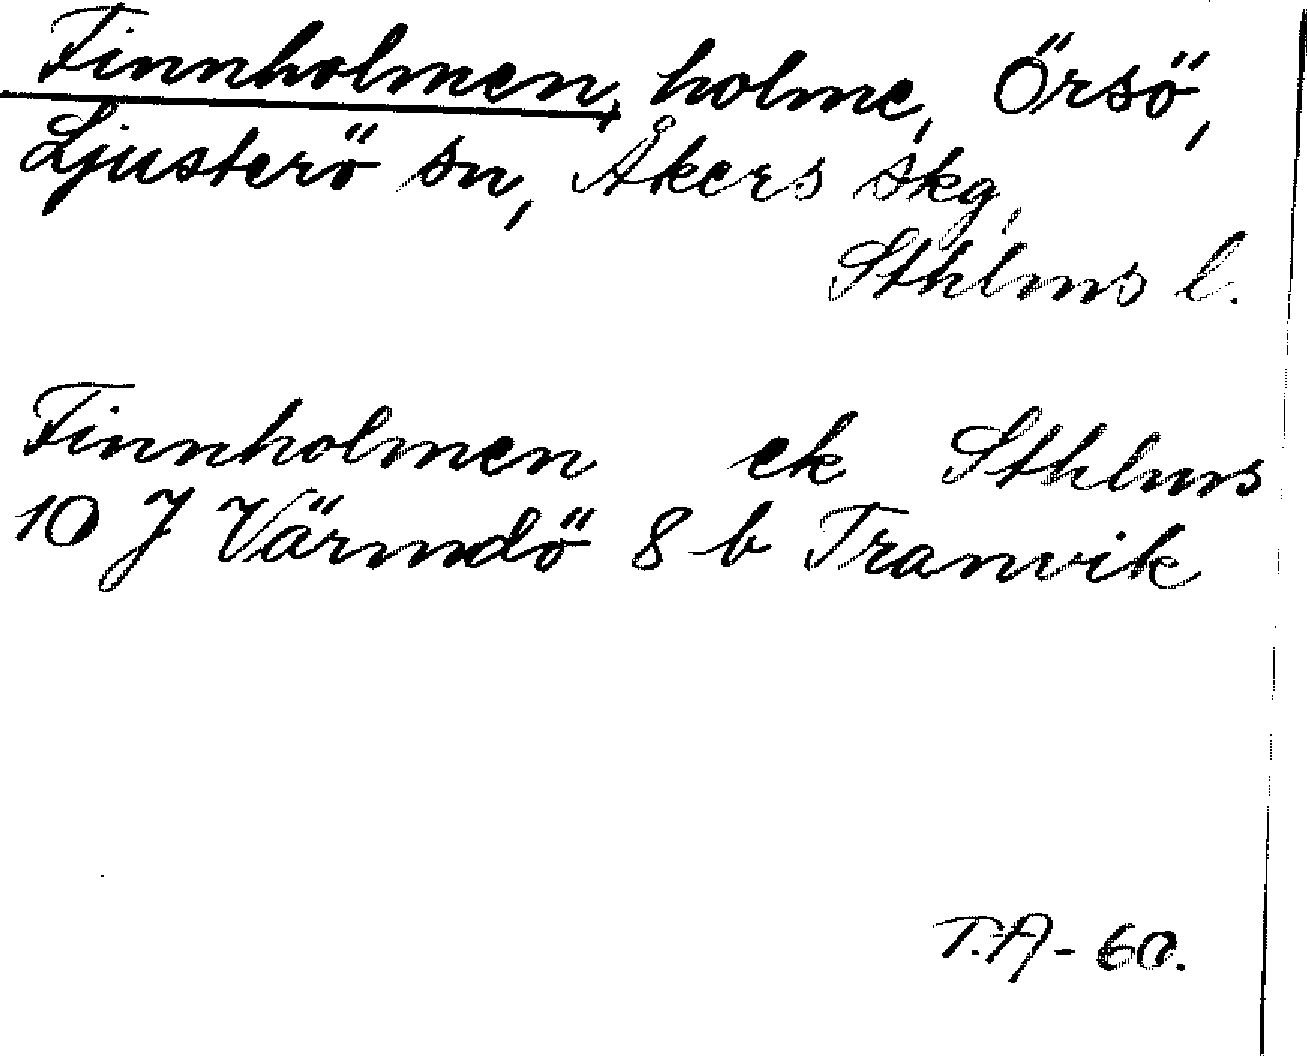 Finnholmen, holme, Örsö,
Ljusterö sn, Åkers skg,
Sthlms l.
Finnholmen ek Sthlms
10 J Värmdö 8 b Tranvik
T.A-60.